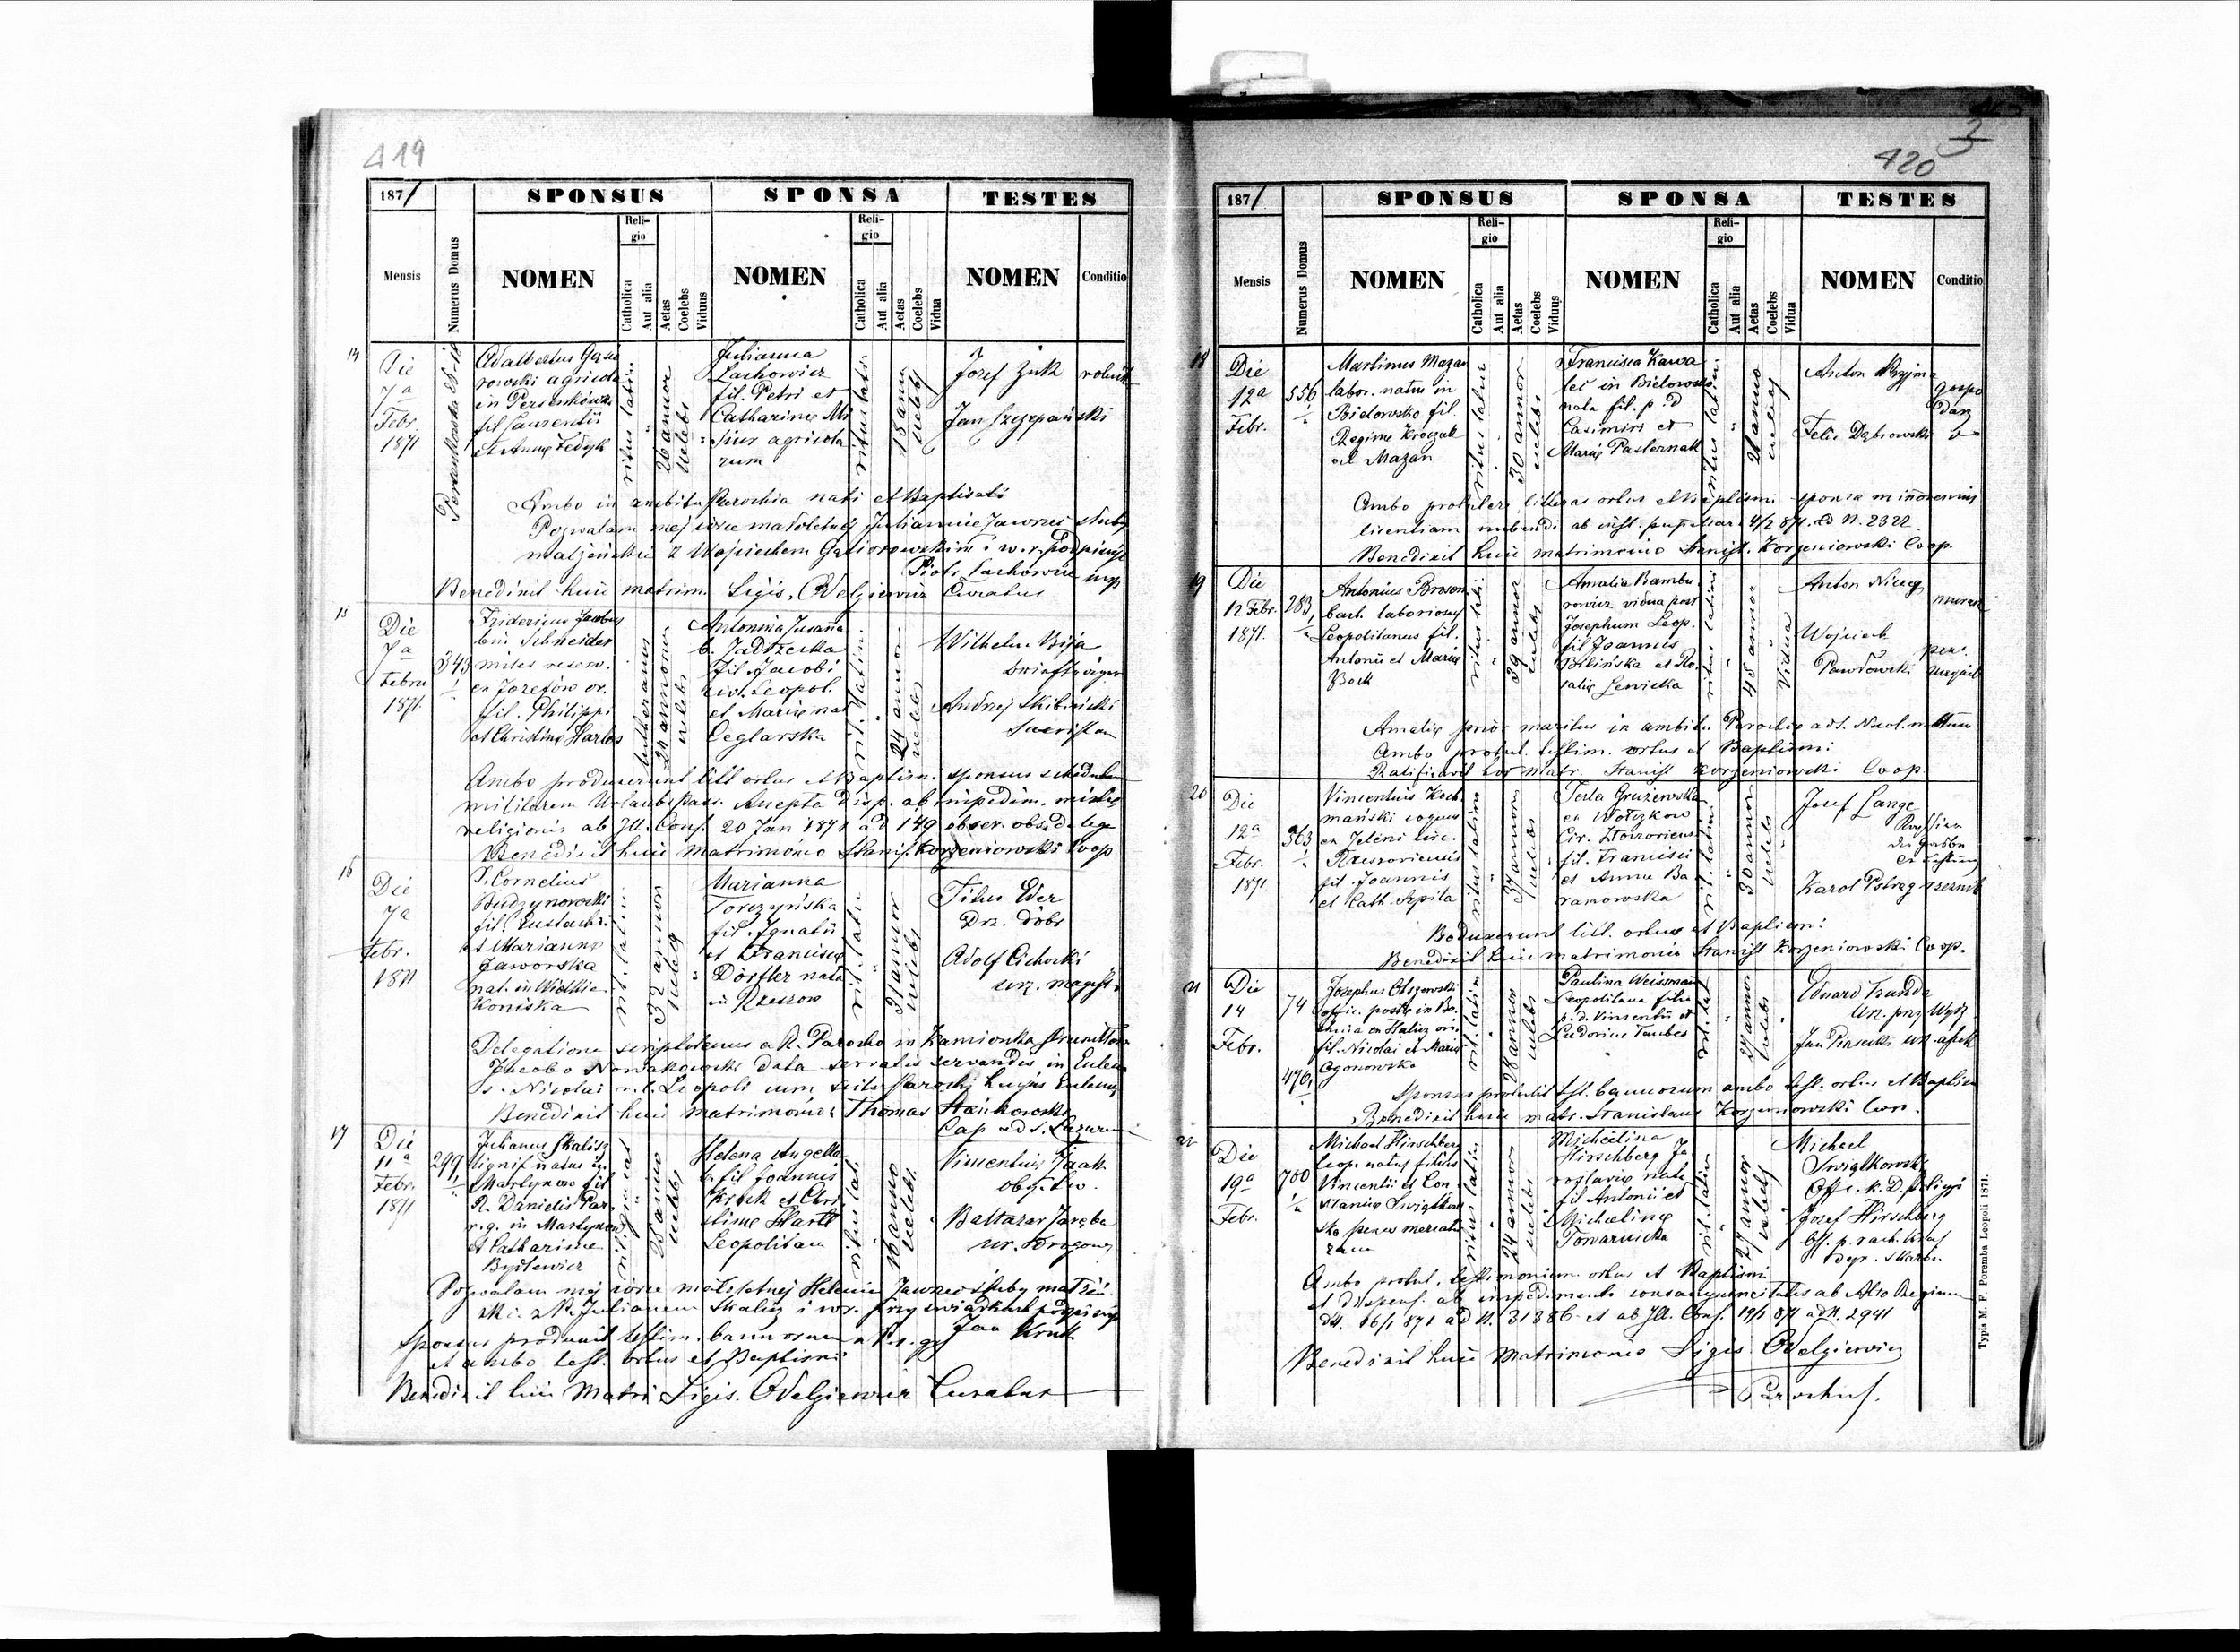 419
1871
SPONSUS
SPONSA
TESTES
Mensis
Numerus Domus
NOMEN
Religio
Catholica
Aut alia
Aetas
Coelebs
Viduus
NOMEN
Religio
Catholica
Aut alia
Aetas
Coelebs
Vidua
NOMEN
Conditio
14
Die
7a
Febr.
1871
Adalbertus Gąsio
rowski agricola
in Persenkówka
fil Laurentii
et Annę Fedyk
ritus latin
26 annor
celebs
Julianna
Lachowicz
fil. Petri et
Catharinę
agricola
rum
ritus lati
18 ann
celebs
Josef Żuk rolnik
Jan Szczepański
Ambo in ambitu Parochia nati et Baptisati
Pozwalam mej córce małoletniej Juliannie zawrzeć śluby
małżeńskie z Wojciechem Gąsiorowskim i w. r. podpisuję
Piotr Lachowicz mp
Benedixit huic matrim. Sigis. Odelgiewicz Curatus
15
Die
7a
Febru
1871
343
Fridericus Jacobus
bin Schneider
miles reserv.
ex Jozefów or.
fil. Philippi
et Christinę Harlos
Lutheranus
24 annorum
celebs
Antonina Zusana
b. Jadrzecka
fil. Jacobi
civ. Leopol.
et Marię nat
Ceglarska
rit. latin
24 annor
celebs
Wilhelm
Briefträger
Andrzej Skibnicki
Sacristan
Ambo produxerunt litt ortus et Baptism. sponsus schedulam
militarem Urlaubs Pass. Accepta disp. ab impedim. mixtę
religionis ab Ill. Cons. 20 Jan 1871 ad 149 obser. obs. de lege
Benedixit huic matrimonio Stanis. Korzeniowski Coop
16
Die
7a
Febr.
1871
P. Cornelius
Budzynowski
fil. Eustachi
et Mariannę
Jaworska
nat. in Wielkie
Koniska
rit. latin
32 annor
celebs
Marianna
Torczyńska
fil. Ignatii
et Franciscę
Dörfler nata
in Rzeszow
rit. latin
31 annor
celebs
Titus Eder
Drz. dóbr
Adolf Cichocki
urz. magist.
Delegatione scriptotenus a R. Parocho in Kamionka Strumiłłowa
Jacobo Nowakowski data servatis servandis in Ecclesia
S. Nicolai r. l. Leopoli cum scitu Parochi hujus Ecclesię
Benedixit huic matrimonio Thomas Stańkowski
Cap ad S. Lazarum
17
Die
11a
Febr.
1871
299
Julianus Skalisz
lignif natus in
Martynow fil
R. Danielis Par.
r. g. in Martynow
et Catharinę
Bystewicz
28 annor
celebs
Helena Angella
b. fil Joannis
Kruk et Chri
stinę Hartl
Leopolitan
ritus lati
18 annor
celebs
Vincentius
Baltazar Jaręba
ur. drogowy
Pozwalam mej córce małoletniej Helenie zawrzeć śluby małżeń
ski z P. Julianem Skalisz i w. r. przy świadkach podpisuję
Jan Kruk
Sponsus produxit testim. bannorum a P. r. g
et ambo test. ortus et Baptismi
Benedixit huic Matri Sigis. Odelgiewicz Curatus
3
420
1871
SPONSUS
SPONSA
TESTES
Mensis
Numerus Domus
NOMEN
Religio
Catholica
Aut alia
Aetas
Coelebs
Viduus
NOMEN
Religio
Catholica
Aut alia
Aetas
Coelebs
Vidua
NOMEN
Conditio
18
Die
12a
Febr.
556
Martinus Mazan
labor. natus in
Bielowsko fil.
Reginę Kroczak
vel Mazan
ritus latini
30 annor
celebs
Francisca Kawa
lec in Bielowsko
nata fil. p. d
Casimiri et
Marię Pasternak
ritus latin
21 annor
celebs
Anton Pryjma
gospo
darz
Felix Dąbrowski
Ambo protulere litteras ortus et Baptismi sponsa minorennis
licentiam nubendi ab inst. pupillari 4/2 871. ad N. 2322
Benedixit huic matrimonio Stanisł. Korzeniowski Coop.
19
Die
12 Febr.
1871.
283
Antonius Broson
bach. laboriosus
Leopolitanus fil.
Antonii et Marię
Bock
39 annor
celebs
Amalia Bambu
rowicz vidua post
Josephum Leop.
fil Joannis
Bilińska et Ro
salię Lewicka
ritus latini
45 annor
Vidua
Anton Niecz
murarz
Wojciech
Pawłowski
pens.
Amalię prior maritus in ambitu Parochię ad S. Nicol. mortuus
Ambo protul. testim. ortus et Baptismi
Ratificavit hoc matr. Stanisł Korzeniowski Coop
20
Die
12a
Febr.
1871
363
Vincentius Koch
mański coquus
ex Jeleni circ.
Rzeszoviensis
fil. Joannis
et Cath. Szpila
ritus latini
37 annor
celebs
Tecla Grużewska
ex Wołczkow
Cir. Złoczoviensis
fil. Francisci
et Annę Ba
ranowska
rit. latin
30 annor
celebs
Josef Lange
Karol Pstrąg
Produxerunt litt. ortus et Baptism:
Benedixit huic matrimonio Stanisł Korzeniowski Coop.
21
Die
14
Febr.
74
476
Josephus Olszowski
offic. postę in Bo
chnia ex Halicz ori
fil. Nicolai et Marię
Ogonowska
rit. latin
28 annor
celebs
Paulina Weissman
Leopolitana filia
p. d. Vincentii et
Ludovicę Taubes
rit. lat
24 annor
celebs
Eduard Trunda
Urz. przy Wydz
Jan Piasecki urz. apel.
Sponsus protulit test. bannorum ambo test. ortus et Baptism
Benedixit huic matr. Stanislaus Korzeniowski Coop.
22
Die
19a
Febr.
700
Michael Hirschberg
Leop. natus filius
Vincentii et Con
stancię Swiątkow
ska
ritus latin
24 annor
celebs
Michalina
Hirschberg Ja
roslavię nata
fil Antonii et
Michalinę
Towarnicka
rit latin
27 annor
celebs
Michael
Swiątkowski
Off. c. k. D. policyi
Josef Hirschberg
Off. p. rach. kraj
Dyr. Skarbu
Ambo protul. testimonium ortus et Baptismi
et dispens. ab impedimento consanguineitatis ab Alto Regimine
dd. 16/1 871 ad N. 31386 et ab Ill. Cons. 19/1 871 ad N. 2941
Benedixit huic Matrimonio Sigis Odelgiewicz
Parochus.
Typis M. F. Poremba Leopoli 1871.